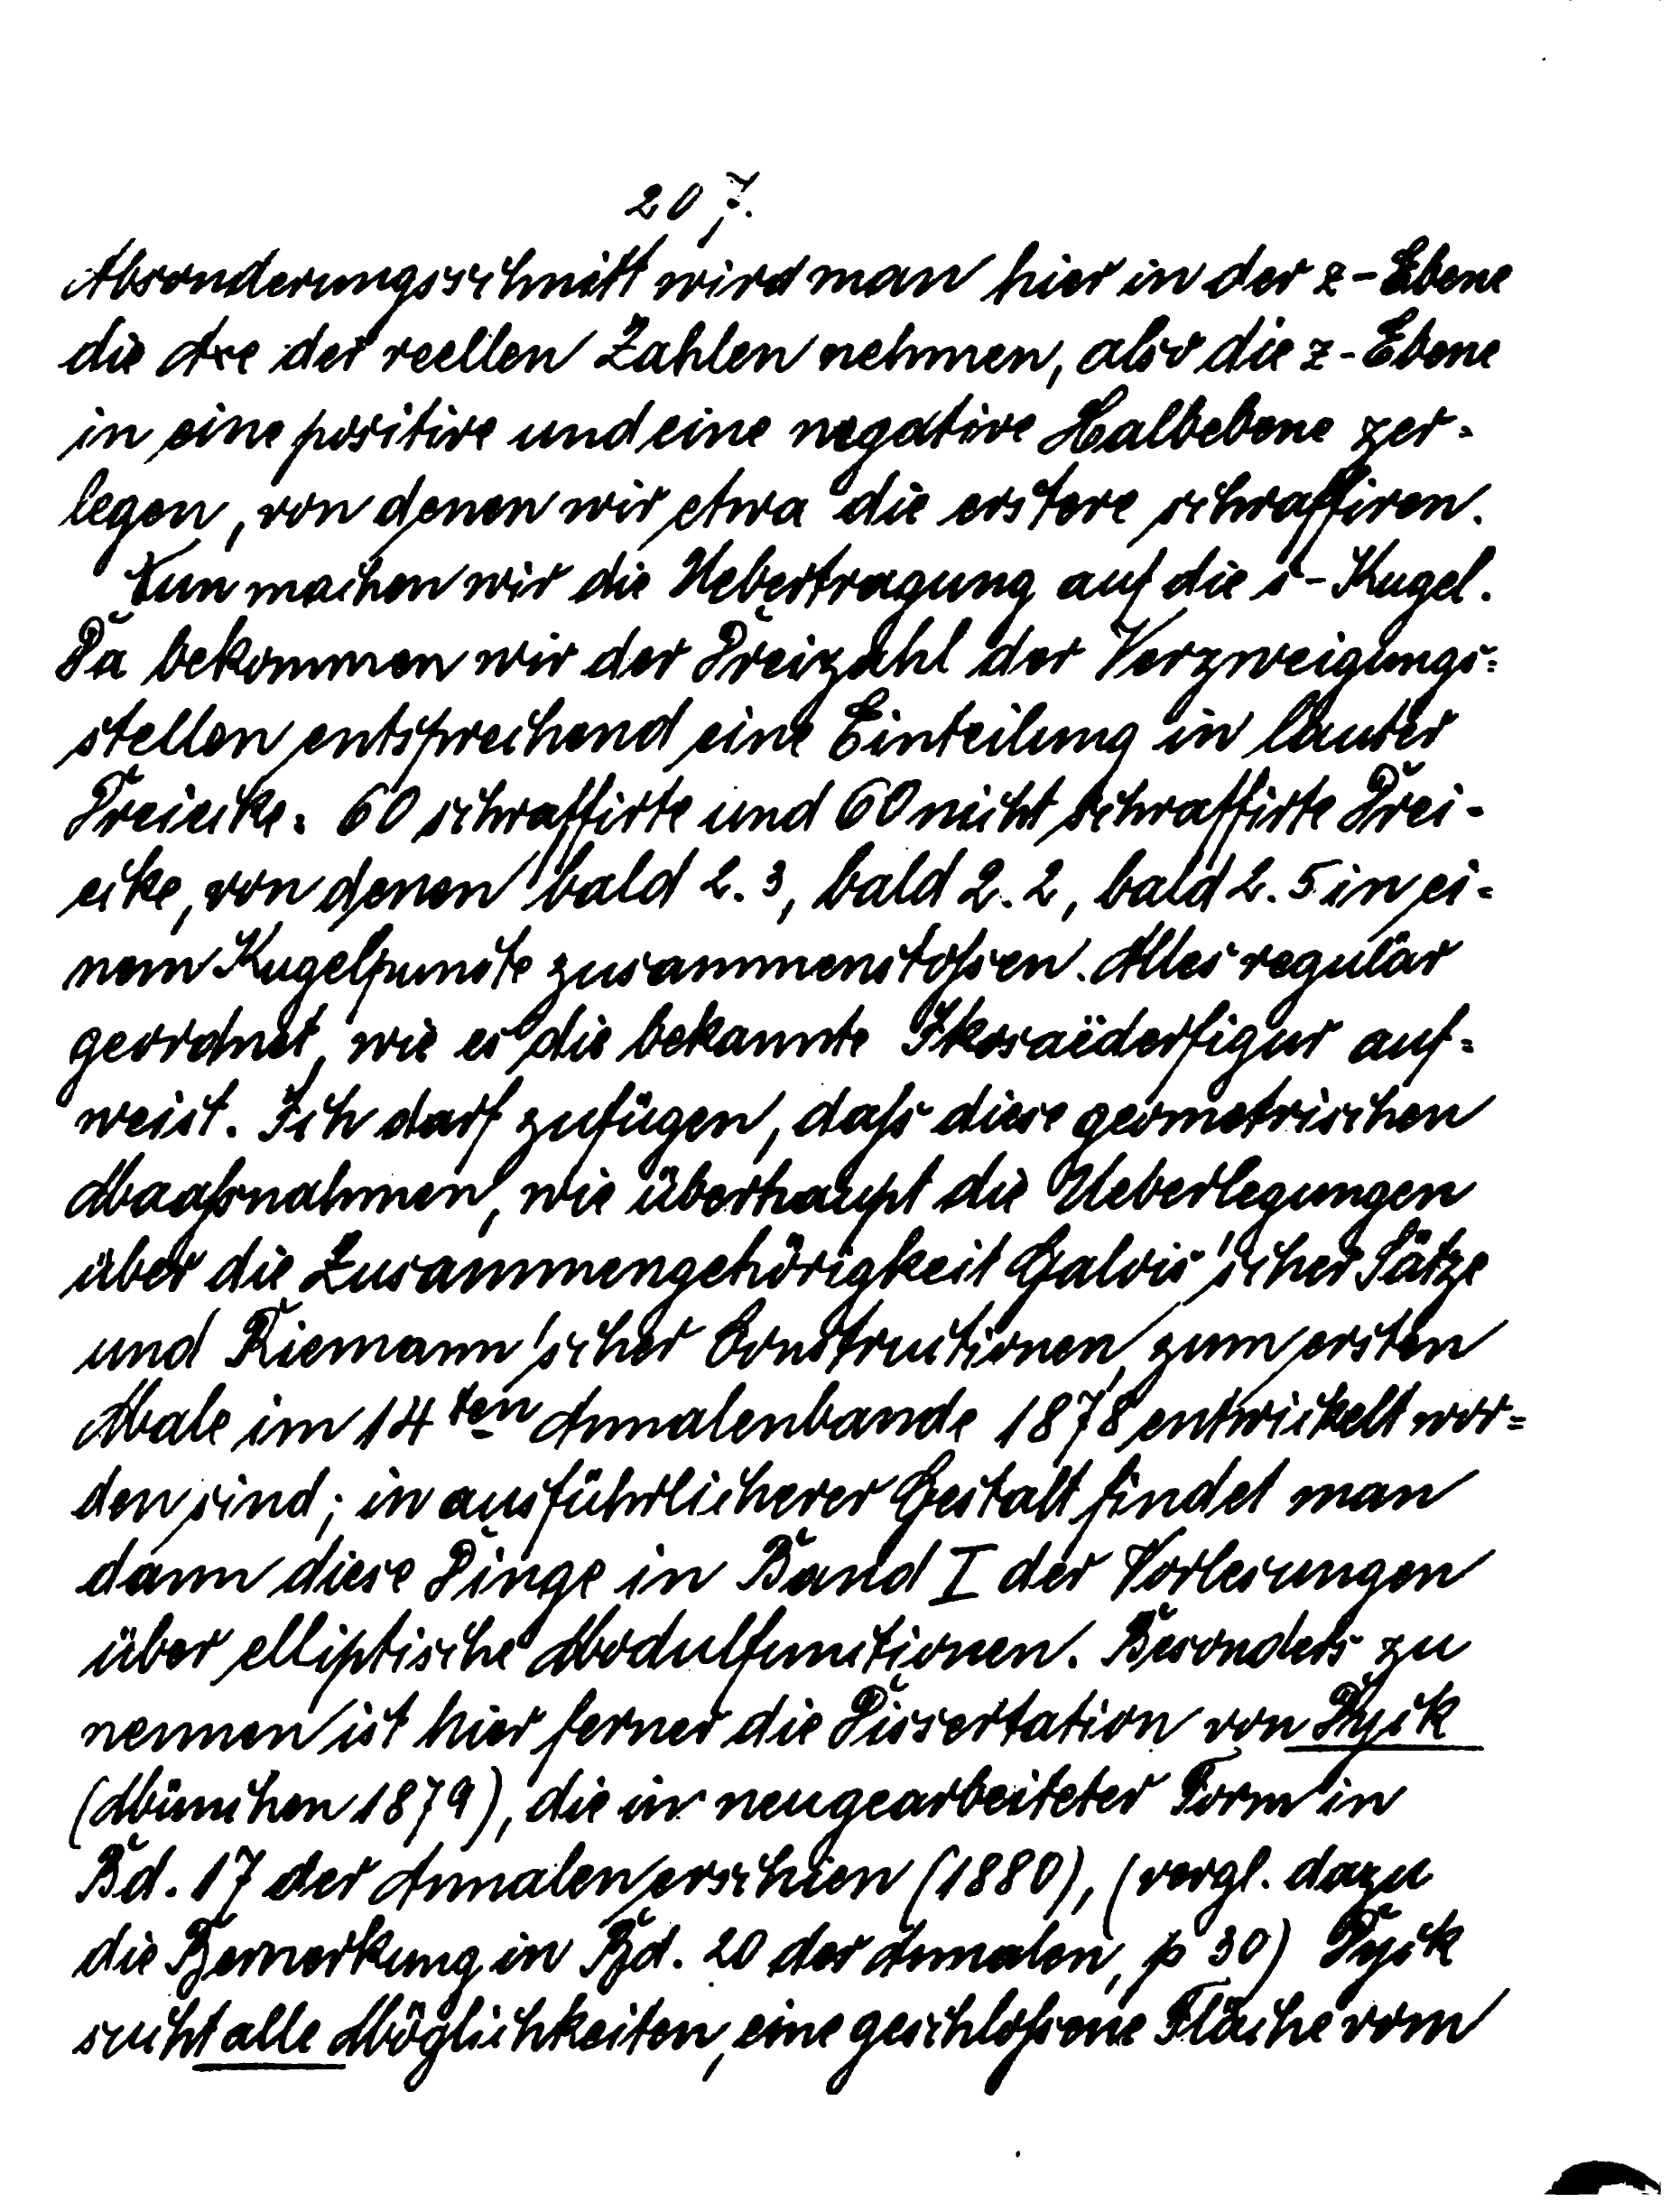 207.
Absonderungsschnitt wird man hier in der z-Ebene
die Axe der reellen Zahlen nehmen, also die z-Ebene
in eine positive und eine negative Halbebene zer-
legen, von denen wir etwa die erstere schraffiren.
Nun machen wir die Uebertragung auf die s-Kugel.
Da bekommen wir der Dreizahl der Verzweigungs-
stellen entsprechend eine Einteilung in lauter
Dreiecke: 60 schraffirte und 60 nicht schraffirte Drei-
ecke, von denen bald 2.3, bald 2.2, bald 2.5 in ei-
nem Kugelpuncte zusammenstoßen. Alles regulär
geordnet, wie es die bekannte Ikosaëderfigur auf-
weist. Ich darf zufügen, daß diese geometrischen
Maaßnahmen, wie überhaupt die Ueberlegungen
über die Zusammengehörigkeit Galois'scher Sätze
und Riemann'scher Constructionen, zum ersten
Male im 14ten Annalenbande 1878 entwickelt wor-
den sind; in ausführlicherer Gestalt findet man
dann diese Dinge in Band I der Vorlesungen
über elliptische Modulfunctionen. Besonders zu
nennen ist hier ferner die Dissertation von Dyck
(München 1879), die in neugearbeiteter Form in
Bd. 17 der Annalen erschien (1880), (vergl. dazu
die Bemerkung in Bd. 20 der Annalen, p 30) Dyck
sucht alle Möglichkeiten, eine geschloßene Fläche vom